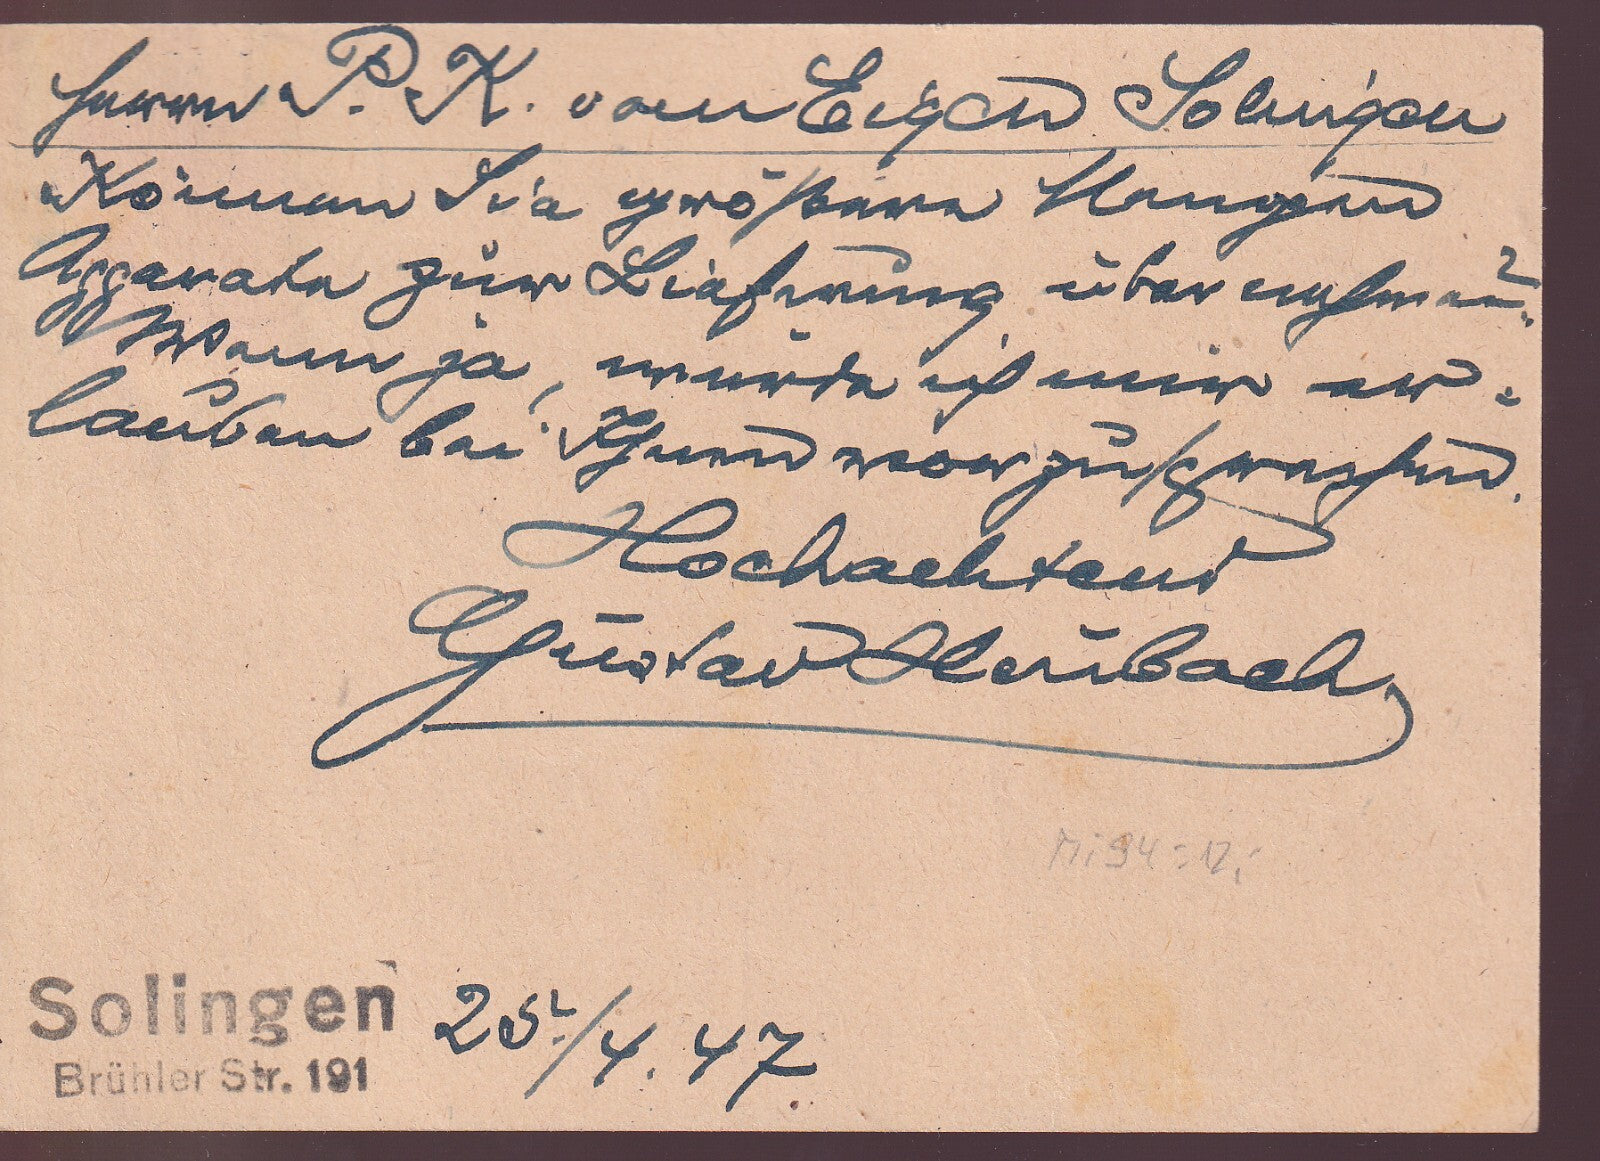 Herrn P. K. vom Eigen Solingen
Können Sie größere Mengen
Apparate zur Lieferung übernehmen?
Wenn ja, würde ich mir er-
lauben bei Ihnen vorzusprechen.
Hochachtend
Gustav Heubach
Mi 94 = 12,-
Solingen
Brühler Str. 191
25./4. 47.